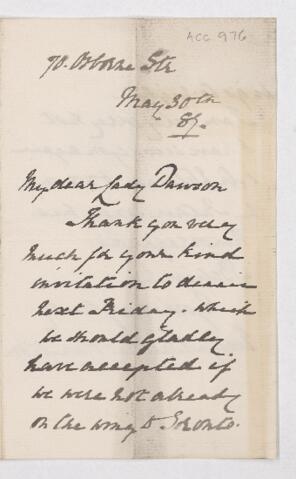 ACC 976
70. Osborne Str
May 30th
87.
My dear Lady Dawson
Thank you very
much for your kind
invitation to dinner
next Friday. which
we should gladly
have accepted if
we were not already
on the wing to Toronto.